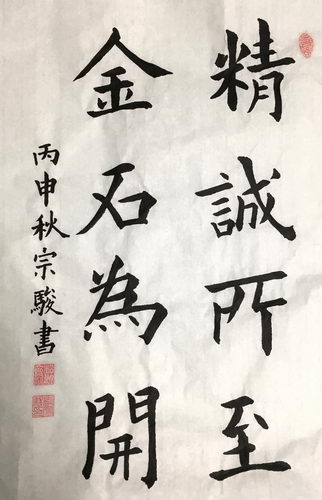 精誠所至
金石為開
丙申秋宗駿書